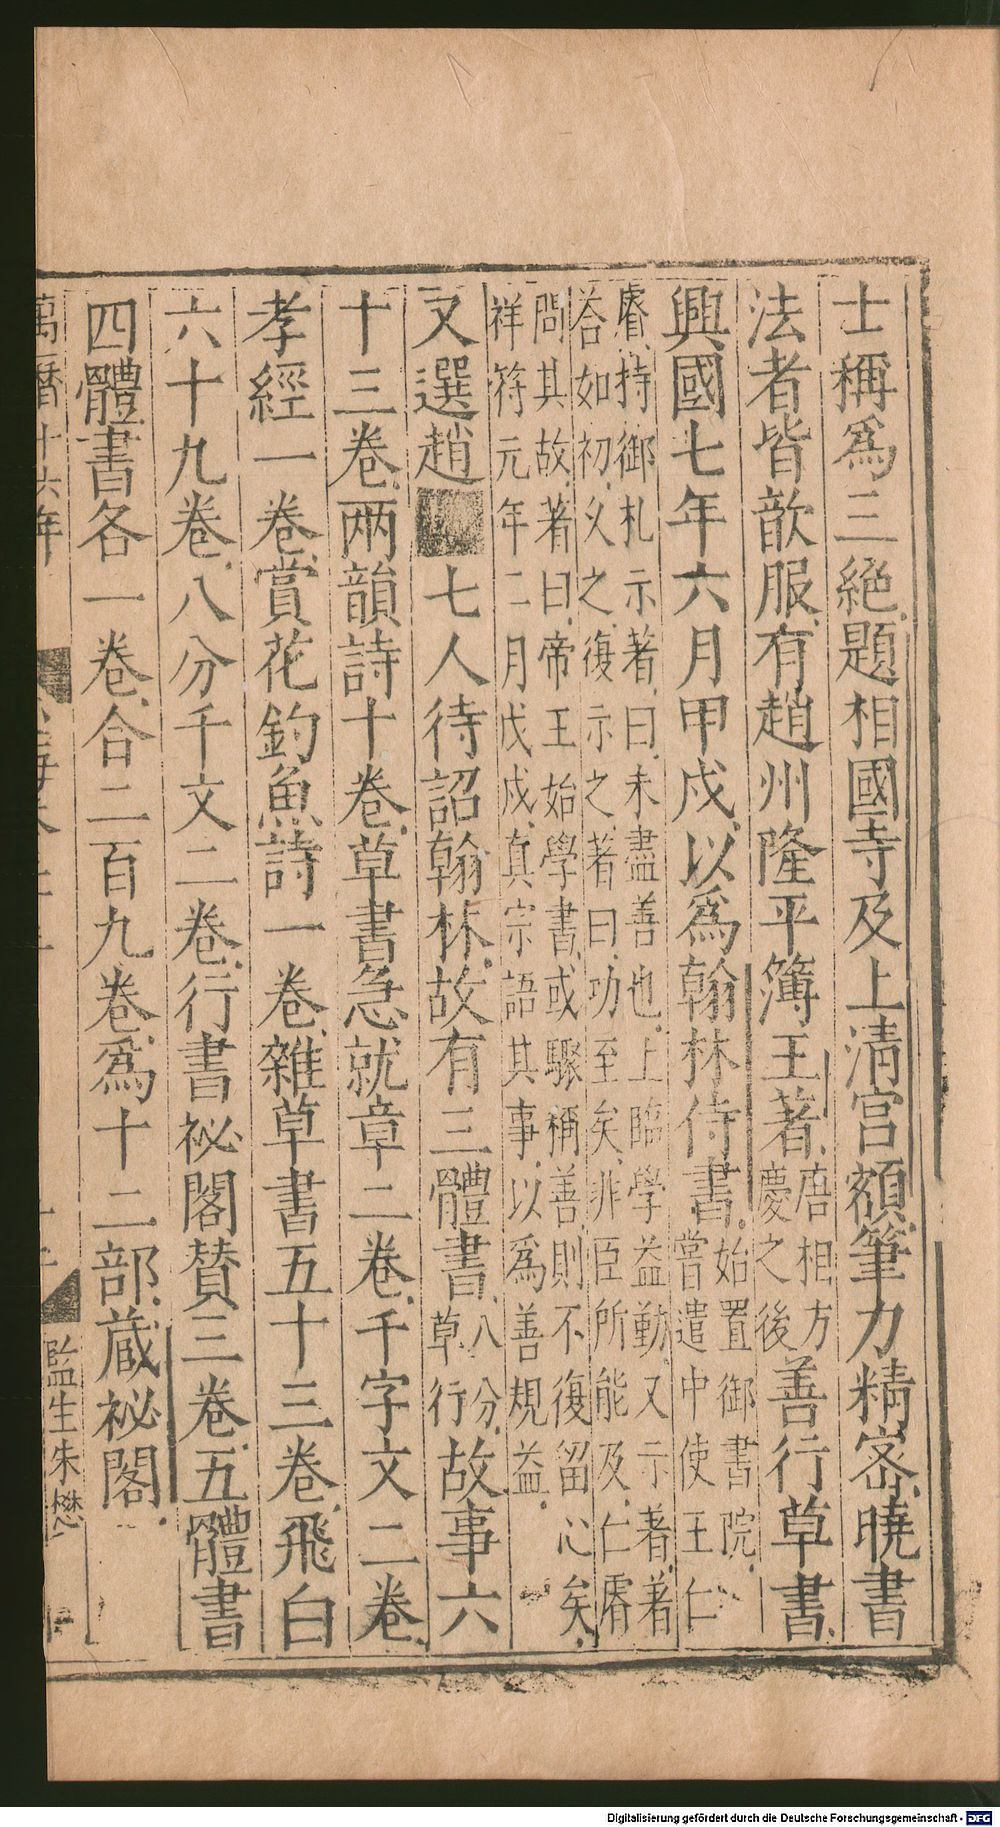 士稱爲三絕題相國寺及上清宫額筆力精宻曉書
法者皆歆服有趙州隆平簿王著唐相方慶之後善行草書
興國七年六月甲戍以爲翰林侍書始置御書院嘗遣中使王仁
睿持御札示著曰未盡善也上臨學益動又示著著
荅如初乂之復示之著曰功至矣非臣所能及仁睿
問其故著曰帝王始學書或驟稱善則不復留心矣
祥符元年二月戊戍真宗語其事以為善規益
又選趙
七人待詔翰林故有三體書八分草行故事六
十三卷兩韻詩十卷草書急就章二卷千字文二卷
孝經一卷賞花釣魚詩一卷雜草書五十三卷飛白
六十九卷八分千文二卷行書祕閣賛三卷五體書
四體書各一卷合二百九卷爲十二部蔵祕閣
萬暦十六年
監生朱懋
Digitalisierung gefördert durch die Deutsche Forschungsgemeinschaft - DFG